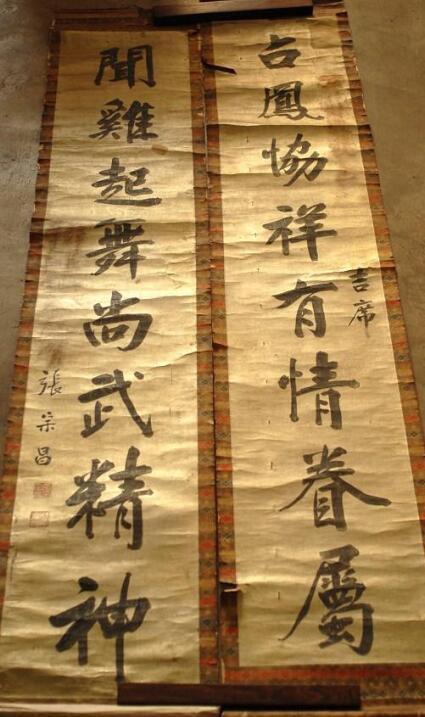 占鳳協祥有情眷屬
吉席
聞雞起舞尚武精神
張宗昌